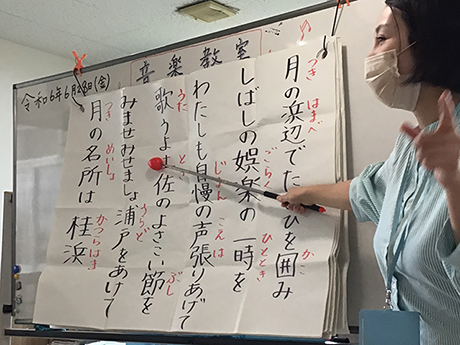 音楽教室
令和6年6月28日(金)
つき はまべ かこ
月の浜辺でた ひを囲み
ごらく ひととき
しばしの娯楽の一時を
こえ は
わたしも自慢の声張りあげて
うた と ぶし
歌うよ土佐のよさこい節を
うらど
みませみせましょ浦戸をあけて
つき めいしょ かつらはま
月の名所は 桂浜